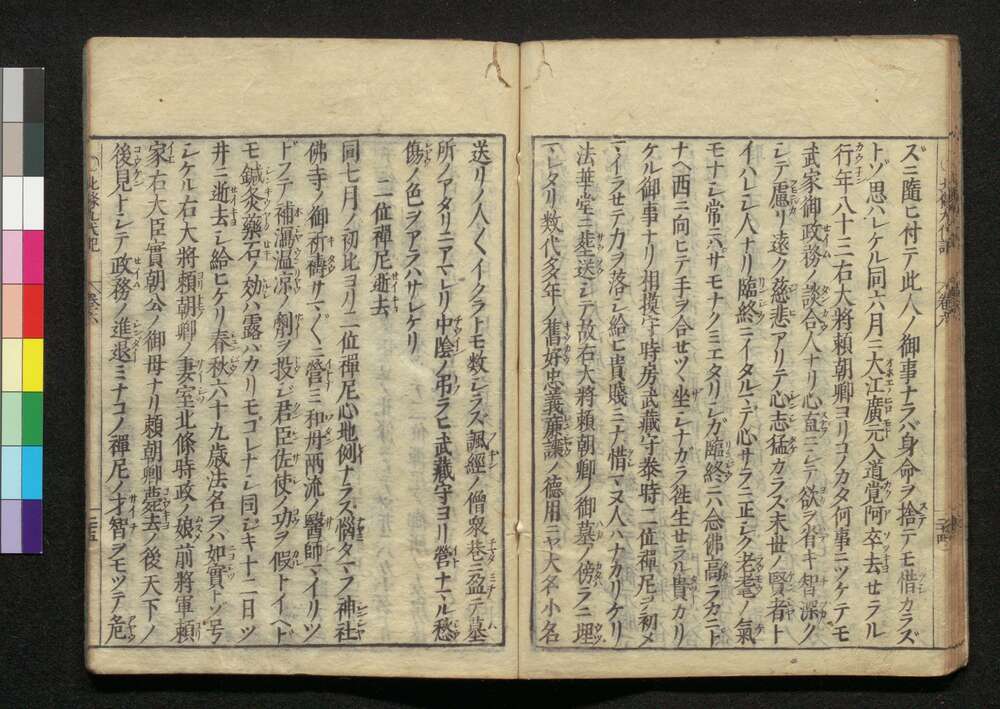 ズニ随ヒ付テ此人ノ御事ナラバ身命ヲ捨テモ惜カラズ
トゾ思ハレケル同六月ニ大江廣元入道覚阿卒去セラル
行年八十三右大將頼朝卿ヨリコノカタ何事ニツケテモ
武家御政務ノ談合人ナリ心直ニシテ欲ヲ省キ智深ク
シテ慮リ遠ク慈悲アリテ心志猛カラズ末世ノ賢者ト
イハレシ人ナリ臨終ニイタルマデ心サラニ正シク老耄ノ氣
モナシ常ニハサモナクミエタリシガ臨終ニハ念佛高ラカニト
ナヘ西ニ向ヒテ手ヲ合セツヽ坐シナカラ徃生セラル貴カリ
ケル御事ナリ相模守時房武藏守泰時二位禪尼ヲ初メ
マイラセテカヲ落シ給ヒ貴賤ミナ惜マヌ人ハナカリケリ
法華堂ニ葬送シテ故右大將頼朝卿ノ御墓ノ傍ラニ埋
マレタリ数代多年ノ舊好忠義廉譲ノ德用ニヤ大名小名
送リノ人々イクラトモ数シラズ諷經ノ僧衆巷ニ盈テ墓
所ノアタリニアマレリ中陰ノ弔ラヒ武藏守ヨリ營ナマル愁
傷ノ色ヲアラハサレケリ
二位禪尼逝去
同七月ノ初比ヨリ二位禪尼心地例ナラス悩タマフ神社
佛寺ノ御祈禱サマ〲ニ營ミ和丹両流ノ醫師マイリツ
ドフテ補瀉温凉ノ劑ヲ投シ君臣佐使ノ功ヲ假トイヘド
モ鍼灸藥石ノ効ハ露バカリモコレナシ同シキ十二日ツ
井ニ逝去シ給ヒケリ春秋六十九歳法名ヲハ如實トゾ号
シケル右大將頼朝卿ノ妻室北條時政ノ娘前將軍頼
家右大臣實朝公ノ御母ナリ頼朝卿薨去ノ後天下ノ
後見トシテ政務ノ進退ミナコノ禪尼ノ才智ヲモツテ危